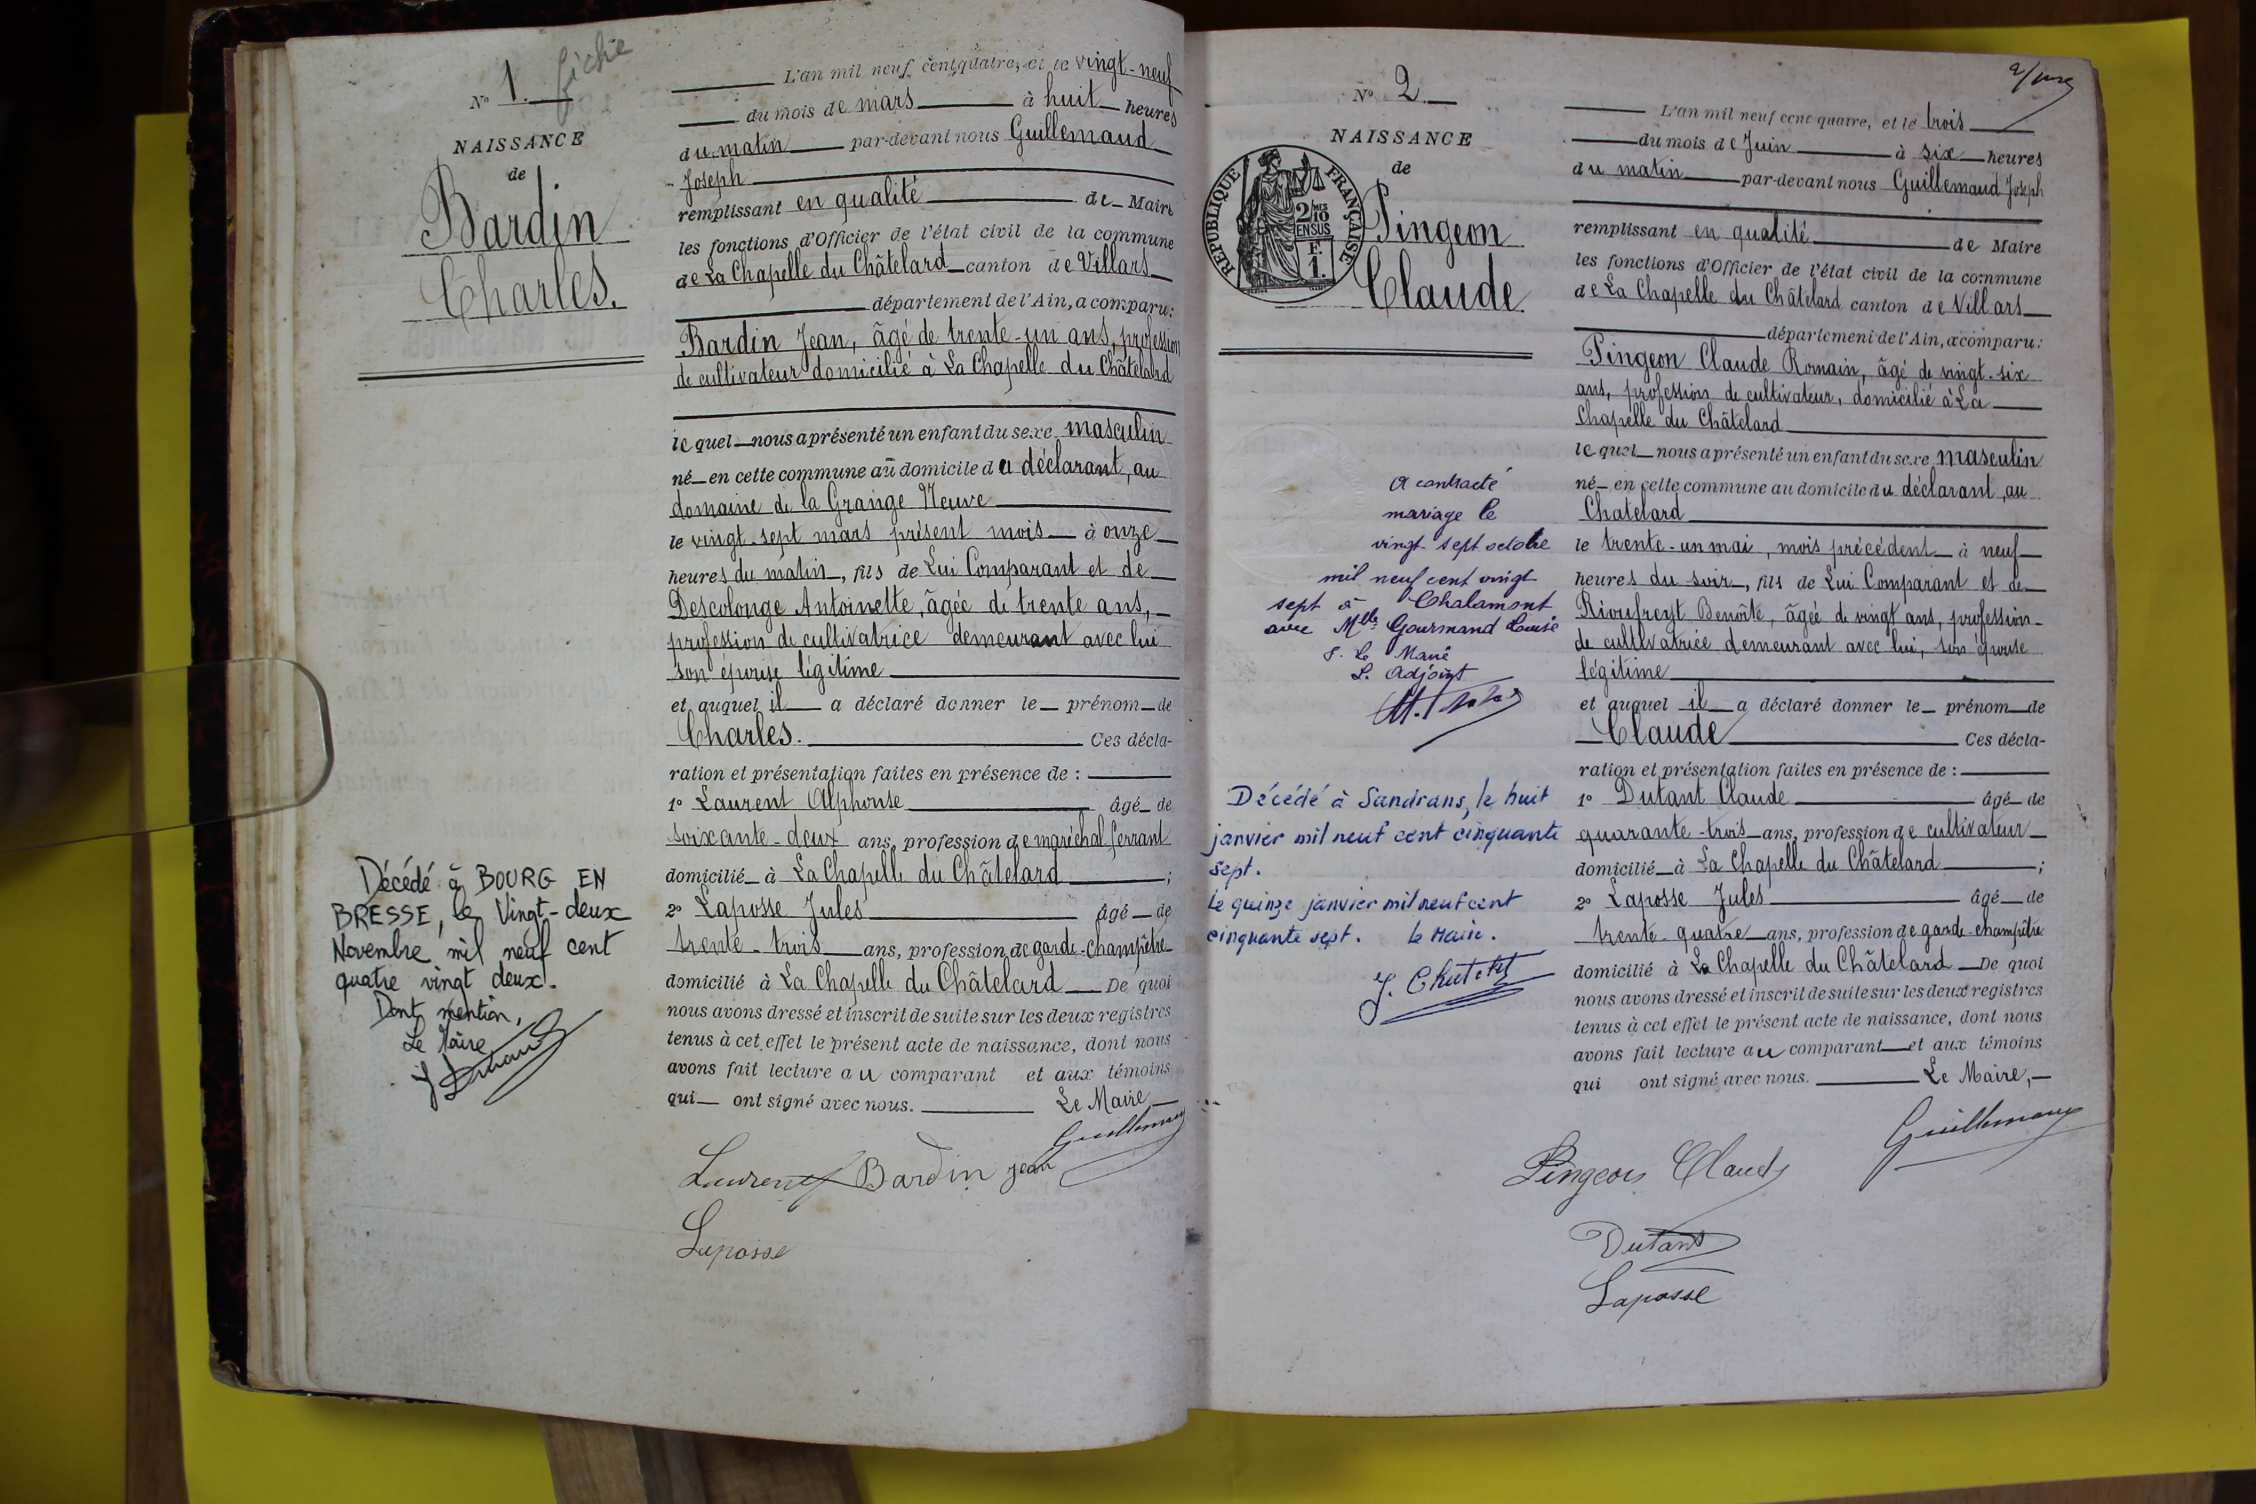 N° 1. fiche
NAISSANCE
de
Bardin
Charles.
Décédé à BOURG EN
BRESSE, le Vingt-deux
Novembre mil neuf cent
quatre vingt deux.
Dont mention,
Le Maire
L'an mil neuf cent quatre, et le vingt-neuf
du mois de mars à huit heures
du matin par-devant nous Guillemaud
Joseph
remplissant en qualité de Maire
les fonctions d'Officier de l'état civil de la commune
de La Chapelle du Châtelard canton de Villars
département de l'Ain, a comparu:
Bardin Jean, âgé de trente-un ans, profession
de cultivateur domicilié à La Chapelle du Châtelard
lequel nous a présenté un enfant du sexe masculin
né en cette commune au domicile du déclarant, au
domaine de la Grange Neuve
le vingt-sept mars présent mois à onze
heures du matin, fils de Lui Comparant et de
Descolonge Antoinette, âgée de trente ans,
profession de cultivatrice demeurant avec lui
son épouse légitime
et auquel il a déclaré donner le prénom de
Charles. Ces décla-
ration et présentation faites en présence de :
1° Laurent Alphonse âgé de
soixante-deux ans, profession de maréchal ferrant
domicilié à La Chapelle du Châtelard ;
2° Laposse Jules âgé de
trente-trois ans, profession de garde-champêtre
domicilié à La Chapelle du Châtelard De quoi
nous avons dressé et inscrit de suite sur les deux registres
tenus à cet effet le présent acte de naissance, dont nous
avons fait lecture au comparant et aux témoins
qui ont signé avec nous. Le Maire
Guillemaud
Laurent Bardin Jean
Laposse
N° 2
NAISSANCE
de
RÉPUBLIQUE FRANÇAISE
2/10 MES
EN SUS
F.
1.
Pingeon
Claude.
A contracté
mariage le
vingt sept octobre
mil neuf cent vingt
sept à Chalamont
avec Mlle Gourmand Louise
P. Le Maire
L. Adjoint
Décédé à Sandrans, le huit
janvier mil neuf cent cinquante
sept.
Le quinze janvier mil neuf cent
cinquante sept. le Maire.
L'an mil neuf cent quatre, et le trois
du mois de Juin à six heures
du matin par-devant nous Guillemaud Joseph
remplissant en qualité de Maire
les fonctions d'Officier de l'état civil de la commune
de La Chapelle du Châtelard canton de Villars
département de l'Ain, a comparu:
Pingeon Claude Romain, âgé de vingt-six
ans, profession de cultivateur, domicilié à La
Chapelle du Châtelard
lequel nous a présenté un enfant du sexe masculin
né en cette commune au domicile du déclarant, au
Chatelard
le trente-un mai, mois précédent à neuf
heures du soir, fils de Lui Comparant et de
Rioufreyt Benoîte, âgée de vingt ans, profession
de cultivatrice demeurant avec lui, son épouse
légitime
et auquel il a déclaré donner le prénom de
Claude Ces décla-
ration et présentation faites en présence de :
1° Dutant Claude âgé de
quarante-trois ans, profession de cultivateur
domicilié à La Chapelle du Châtelard ;
2° Laposse Jules âgé de
trente-quatre ans, profession de garde-champêtre
domicilié à La Chapelle du Châtelard De quoi
nous avons dressé et inscrit de suite sur les deux registres
tenus à cet effet le présent acte de naissance, dont nous
avons fait lecture au comparant et aux témoins
qui ont signé avec nous. Le Maire,
Guillemaud
Pingeon Claude
Dutant
Laposse